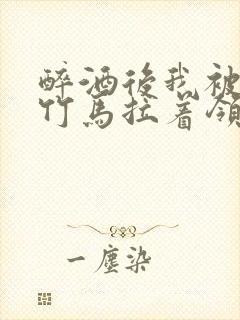 醉酒後我被
竹馬拉着領
一塵染